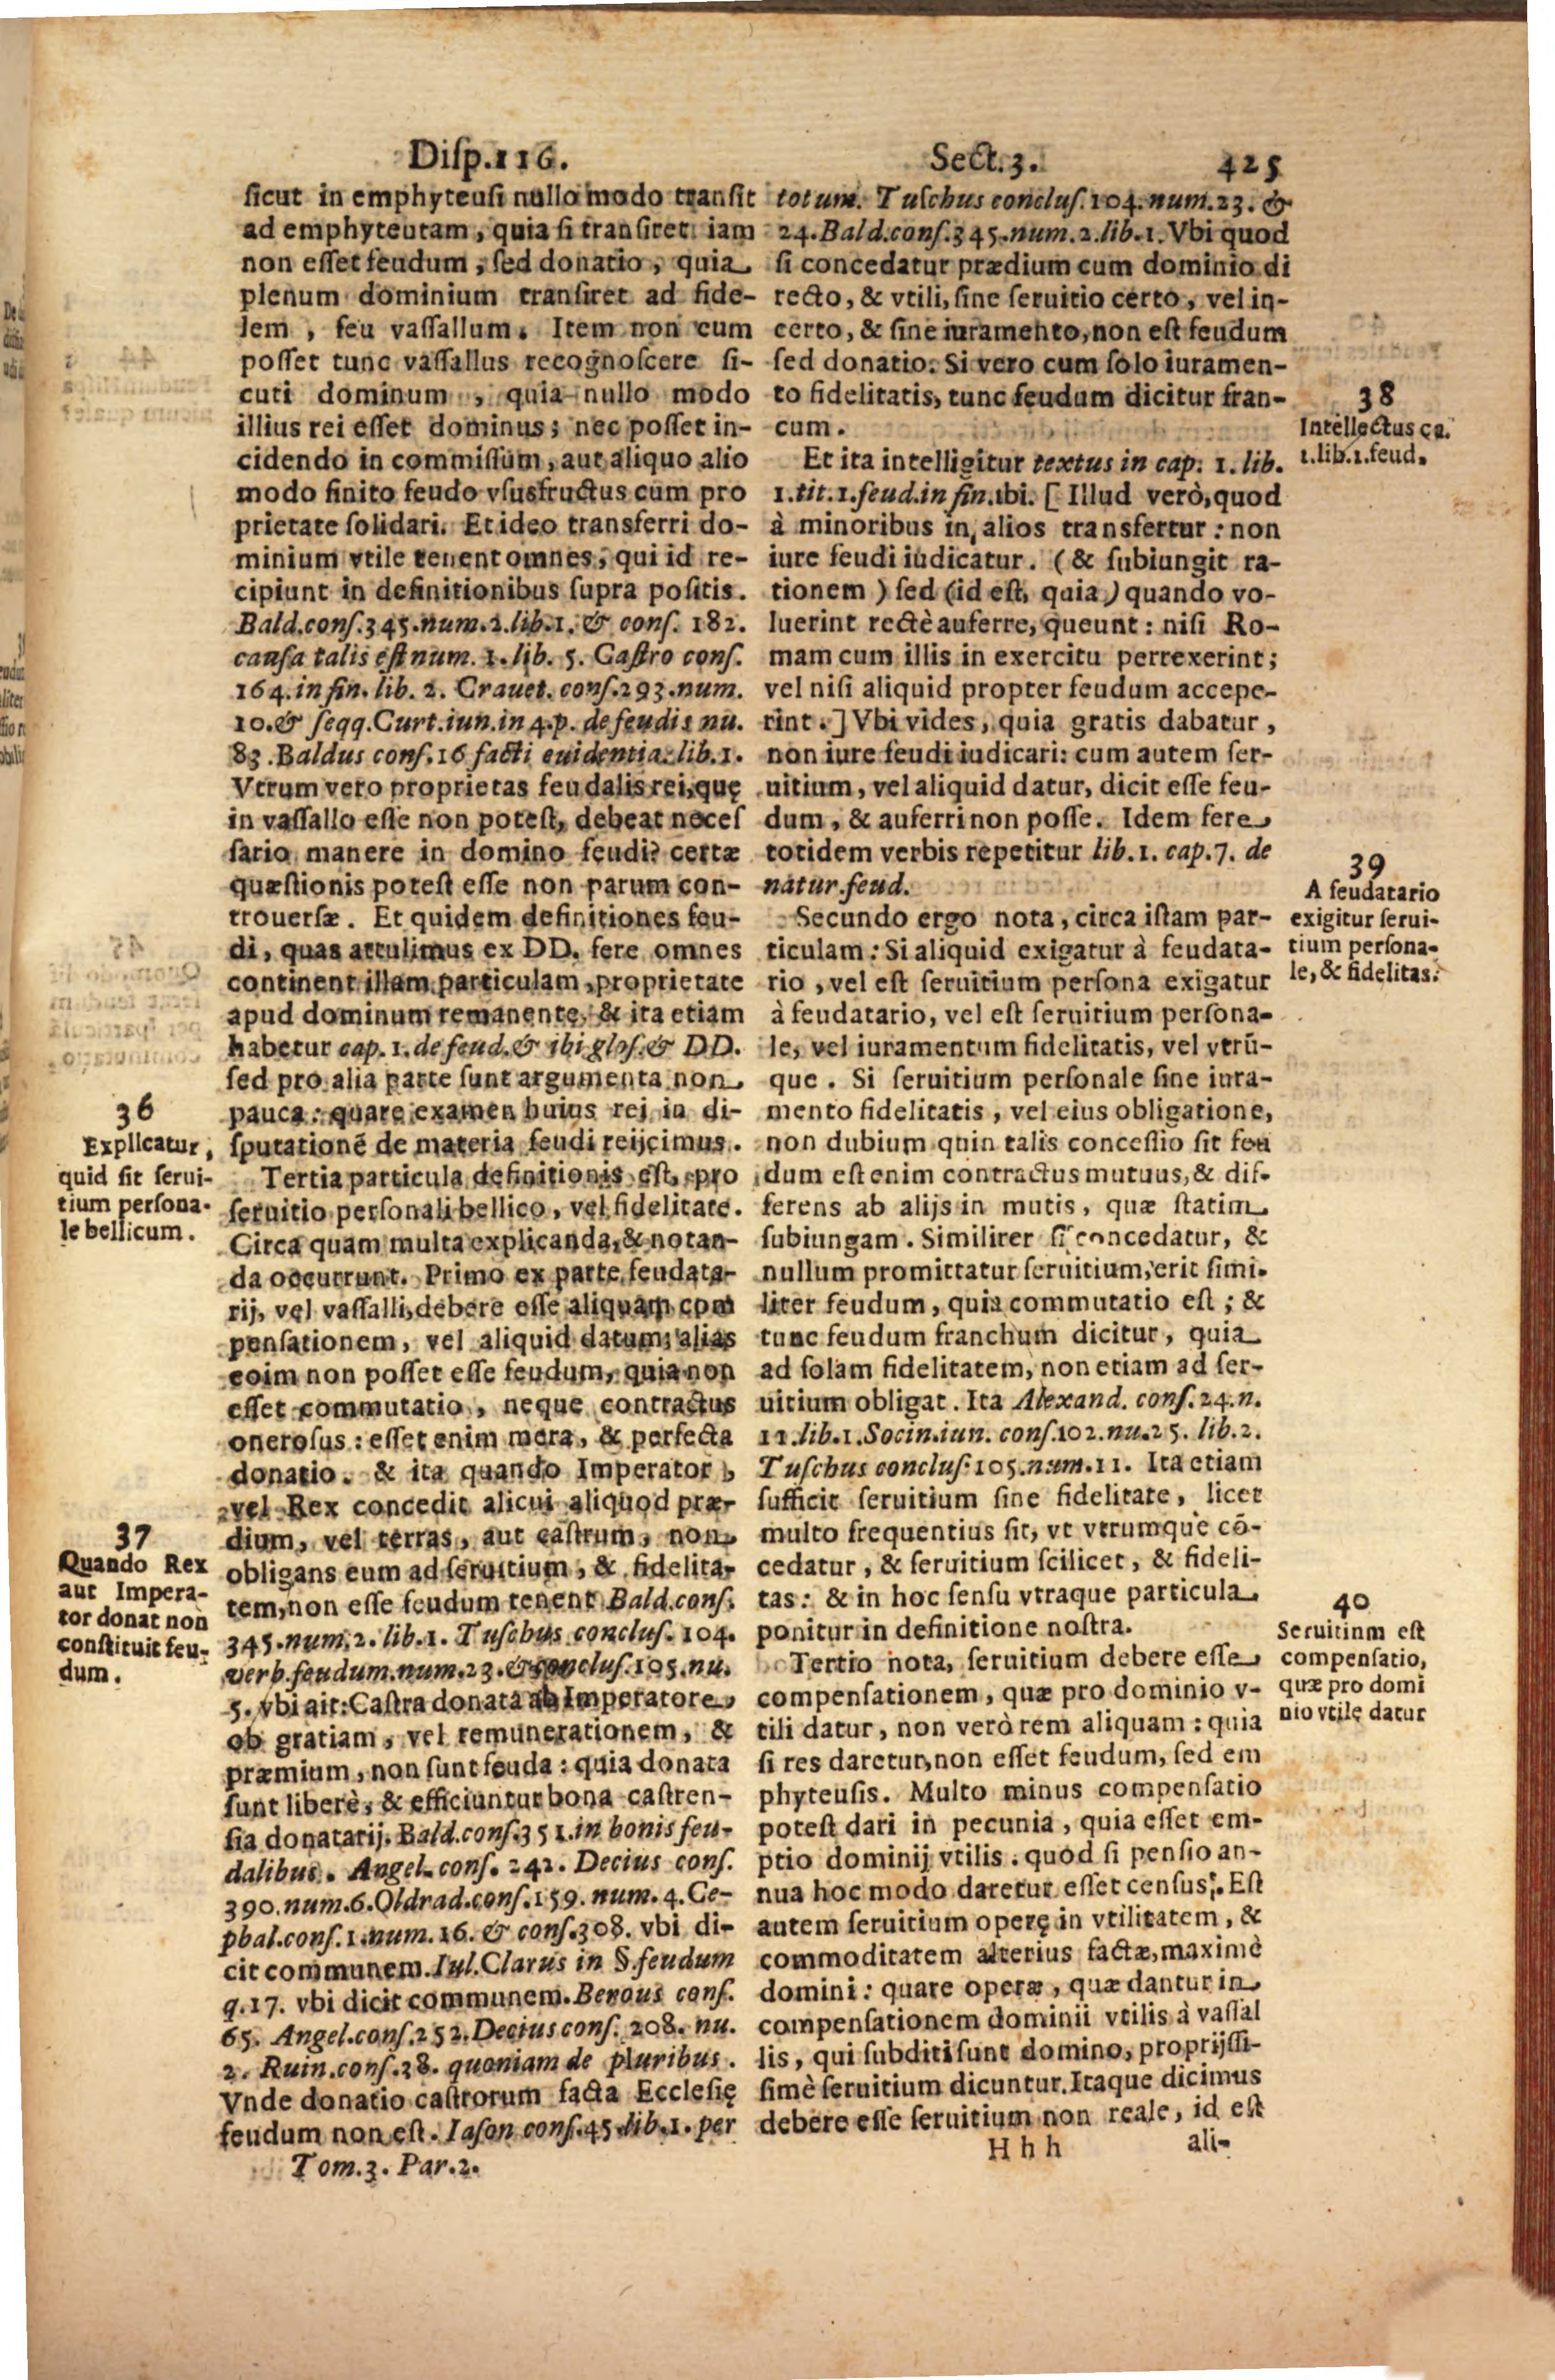 Disp.116. Sect.3. 425
sicut in emphyteusi nullo modo transit
ad emphyteutam, quia si transiret iam
non esset feudum, sed donatio, quia
plenum dominium transiret ad fide-
lem, seu vassallum. Item non cum
posset tunc vassallus recognoscere si-
cuti dominum, quia nullo modo
illius rei esset dominus; nec posset in-
cidendo in commissum, aut aliquo alio
modo finito feudo vsusfructus cum pro
prietate solidari. Et ideo transferri do-
minium vtile tenent omnes, qui id re-
cipiunt in definitionibus supra positis.
Bald.cons.345.num.2.lib.1. & cons. 182.
causa talis est num. 1. lib. 5. Castro cons.
164. in fin. lib. 2. Crauet. cons.293.num.
10.& seqq.Curt.iun.in 4.p. de feudis nu.
83.Baldus cons.16 facti euidentia.lib.1.
Vtrum vero proprietas feudalis rei, quę
in vassallo esse non potest, debeat neces
sario manere in domino feudi? certæ
quæstionis potest esse non parum con-
trouersæ. Et quidem definitiones feu-
di, quas attulimus ex DD. fere omnes
continent illam particulam, proprietate
apud dominum remanente, & ita etiam
habetur cap. 1. de feud.& ibi glos.& DD.
sed pro alia parte sunt argumenta non
pauca: quare examen huius rei in di-
sputationē de materia feudi reijcimus.
36
Explicatur,
quid sit serui-
tium persona-
le bellicum.
Tertia particula definitionis est, pro
seruitio personali bellico, vel fidelitate.
Circa quam multa explicanda, & notan-
da occurrunt. Primo ex parte feudata-
rij, vel vassalli, debere esse aliquam com
pensationem, vel aliquid datum; alias
enim non posset esse feudum, quia non
esset commutatio, neque contractus
onerosus: esset enim mera, & perfecta
donatio. & ita quando Imperator,
vel Rex concedit alicui aliquod præ-
dium, vel terras, aut castrum, non
obligans eum ad seruitium, & fidelita-
tem, non esse feudum tenent Bald.cons.
345.num.2. lib.1. Tuschus conclus. 104.
verb.feudum.num.23.& conclus.105.nu.
5. vbi ait: Castra donata ab Imperatore,
ob gratiam, vel remunerationem, &
præmium, non sunt feuda: quia donata
sunt liberè, & efficiuntur bona castren-
sia donatarij. Bald.cons.351.in bonis feu-
dalibus. Angel. cons. 242. Decius cons.
390.num.6.Oldrad.cons.159. num. 4.Ce-
phal.cons.1.num.16. & cons.308. vbi di-
cit communem.Iul.Clarus in §.feudum
q.17. vbi dicit communem.Berous cons.
65. Angel.cons.252.Decius cons. 208. nu.
2. Ruin.cons.38. quoniam de pluribus.
Vnde donatio castrorum facta Ecclesię
feudum non est. Iason cons.45.lib.1. per
37
Quando Rex
aut Impera-
tor donat non
constituit feu-
dum.
Tom.3. Par.2.
totum. Tuschus conclus.104.num.23. &
24.Bald.cons.345.num.2.lib.1.Vbi quod
si concedatur prædium cum dominio di
recto, & vtili, sine seruitio certo, vel in-
certo, & sine iuramento, non est feudum
sed donatio. Si vero cum solo iuramen-
to fidelitatis, tunc feudum dicitur fran-
cum.
38
Intellectus ca.
1.lib.1.feud.
Et ita intelligitur textus in cap. 1. lib.
1.tit.1.feud.in fin.ibi. [Illud verò, quod
à minoribus in alios transfertur: non
iure feudi iudicatur. (& subiungit ra-
tionem) sed (id est, quia) quando vo-
luerint rectè auferre, queunt: nisi Ro-
mam cum illis in exercitu perrexerint;
vel nisi aliquid propter feudum accepe-
rint.] Vbi vides, quia gratis dabatur,
non iure feudi iudicari: cum autem ser-
uitium, vel aliquid datur, dicit esse feu-
dum, & auferri non posse. Idem fere
totidem verbis repetitur lib.1. cap.7. de
natur.feud.
39
A feudatario
exigitur serui-
tium persona-
le, & fidelitas.
Secundo ergo nota, circa istam par-
ticulam: Si aliquid exigatur à feudata-
rio, vel est seruitium persona exigatur
à feudatario, vel est seruitium persona-
le, vel iuramentum fidelitatis, vel vtrū-
que. Si seruitium personale sine iura-
mento fidelitatis, vel eius obligatione,
non dubium quin talis concessio sit feu
dum est enim contractus mutuus, & dif-
ferens ab alijs in mutis, quæ statim
subiungam. Similirer si concedatur, &
nullum promittatur seruitium, erit simi-
liter feudum, quia commutatio est; &
tunc feudum franchum dicitur, quia
ad solam fidelitatem, non etiam ad ser-
uitium obligat. Ita Alexand. cons.24.n.
11.lib.1.Socin.iun. cons.102.nu.25. lib.2.
Tuschus conclus.105.num.11. Ita etiam
sufficit seruitium sine fidelitate, licet
multo frequentius sit, vt vtrumque cō-
cedatur, & seruitium scilicet, & fideli-
tas: & in hoc sensu vtraque particula
ponitur in definitione nostra.
40
Seruitinm est
compensatio,
quæ pro domi
nio vtilę datur
Tertio nota, seruitium debere esse
compensationem, quæ pro dominio v-
tili datur, non verò rem aliquam: quia
si res daretur, non esset feudum, sed em
phyteusis. Multo minus compensatio
potest dari in pecunia, quia esset em-
ptio dominij vtilis. quod si pensio an-
nua hoc modo daretur esset census. Est
autem seruitium operę in vtilitatem, &
commoditatem alterius factæ, maximè
domini: quare operæ, quæ dantur in
compensationem dominii vtilis à vassal
lis, qui subditi sunt domino, proprijssi-
simè seruitium dicuntur. Itaque dicimus
debere esse seruitium non reale, id est
Hhh ali-